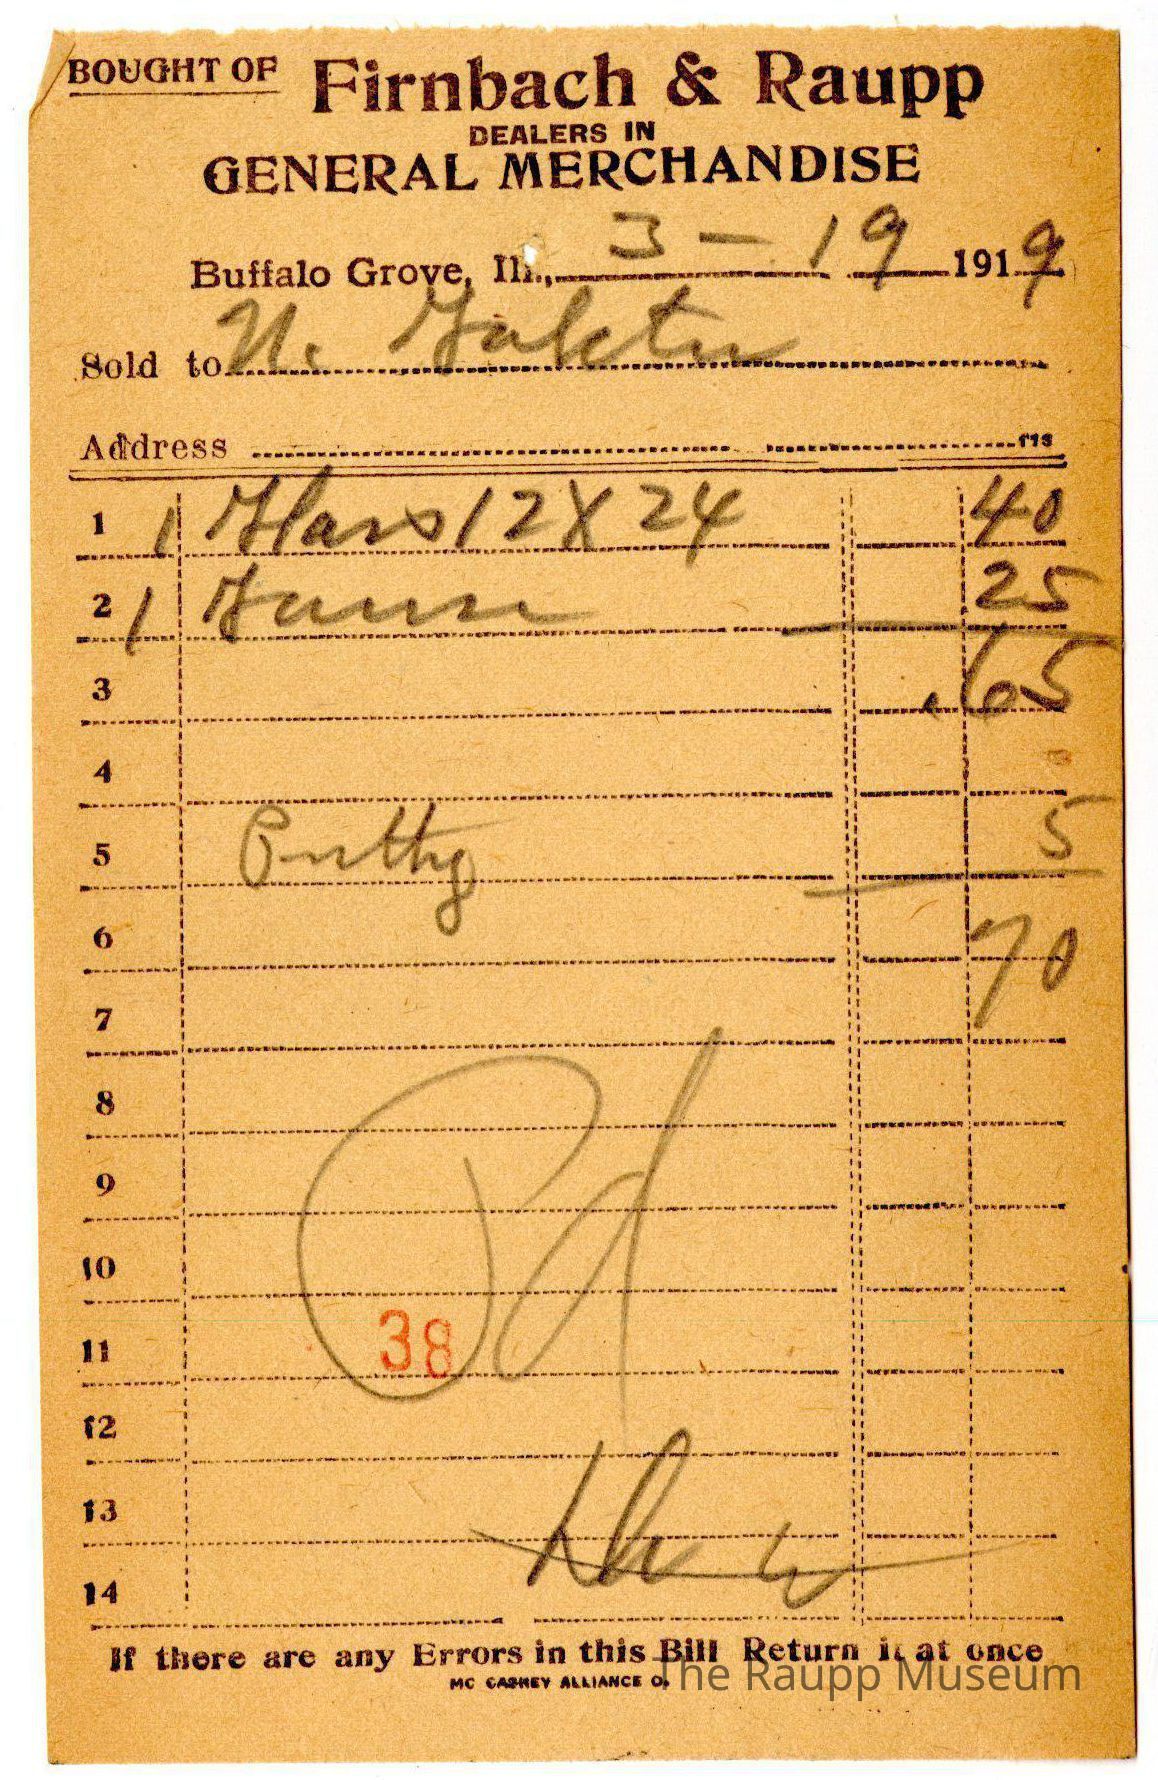 BOUGHT OF Firnbach & Raupp
DEALERS IN
GENERAL MERCHANDISE
Buffalo Grove, Ill., 3 - 19 1919
Sold to N.
Address
1 1 Glass 12 X 24 40
2 1 25
3 .65
4
5 Putty 5
6 70
7
8
Pd
9
10
11 38
12
13
14
If there are any Errors in this Bill Return it at once
MC CASKEY ALLIANCE O.
The Raupp Museum